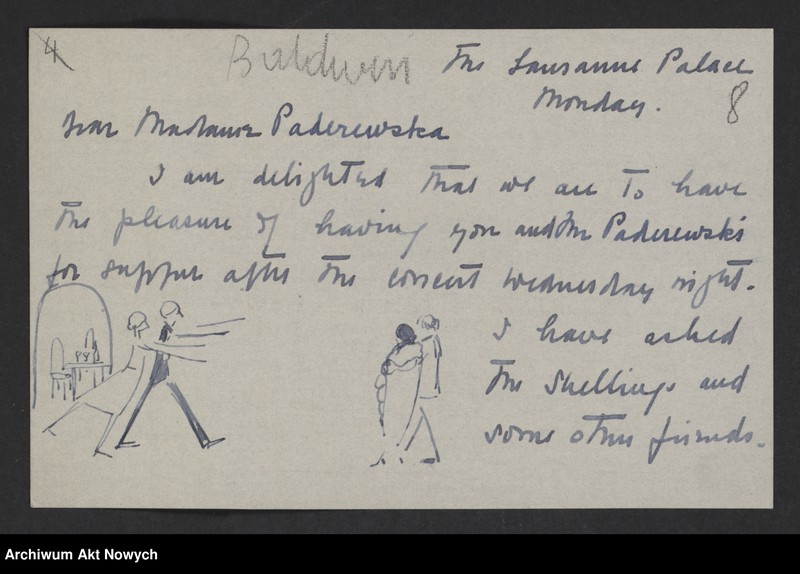 4
Baldwin
The Lausanne Palace
Monday.
8
Dear Madame Paderewska
I am delighted that we are to have
the pleasure of having you and Mr Paderewski
for supper after the concert Wednesday night.
I have asked
the Shellings and
some other friends.
Archiwum Akt Nowych